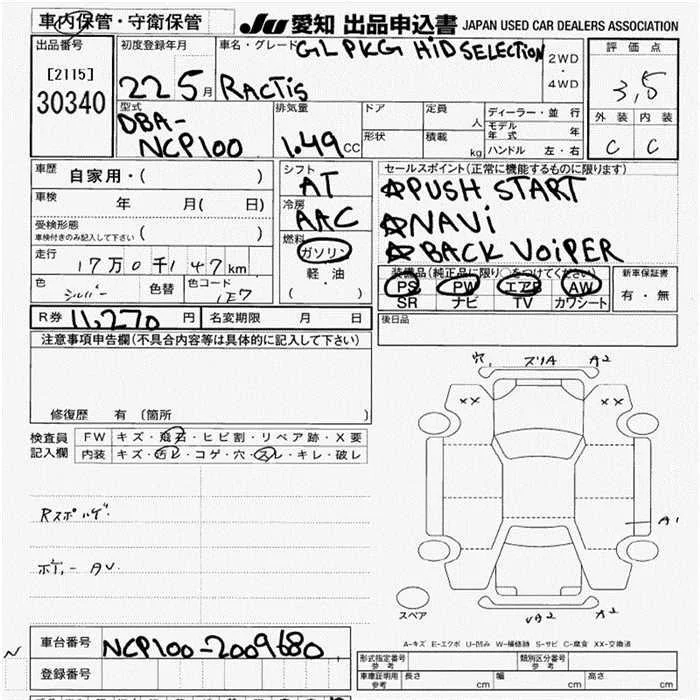 車内保管・守衛保管
JU 愛知 出品申込書 JAPAN USED CAR DEALERS ASSOCIATION
出品番号
[2115]
30340
初度登録年月
22 5月
車名・グレード GL PKG HiD SELECTION
RACTiS
2WD
・
4WD
評価点
3,5
外装 内装
C C
型式
DBA-
NCP100
排気量
1.49cc
ドア
形状
定員 人
積載 kg
ディーラー・並行
モデル年式 年
ハンドル 左・右
車歴 自家用・( )
車検 年 月( 日)
受検形態
車検付きのみ記入して下さい ( )
走行 17万0千147km
色 シルバー 色替 色コード 1E7
シフト
AT
冷房
AAC
燃料
ガソリン・
軽油
( )
セールスポイント(正常に機能するものに限ります)
☆PUSH START
☆NAVi
☆BACK VOiPER
装備品(純正品に限り○をつけてください)
PS PW エアB AW
SR ナビ TV カワシート
新車保証書
有・無
R券 11,270円 名変期限 月 日
後日品
注意事項申告欄(不具合内容等は具体的に記入して下さい)
修復歴 有(箇所 )
検査員
記入欄
FW キズ・飛石・ヒビ割・リペア跡・X要
内装 キズ・汚レ・コゲ・穴・スレ・キレ・破レ
Rスポ ハゲ
ボディー AU
穴 スリA A2
XX XX
A1
A2
スペア
A-キズ E-エクボ U-凹み W-補修跡 S-サビ C-腐食 XX-交換済
N
車台番号 NCP100-2009680
登録番号
形式指定番号
参考
類別区分番号
参考
車庫証明用
参考
長さ cm 幅 cm 高さ cm